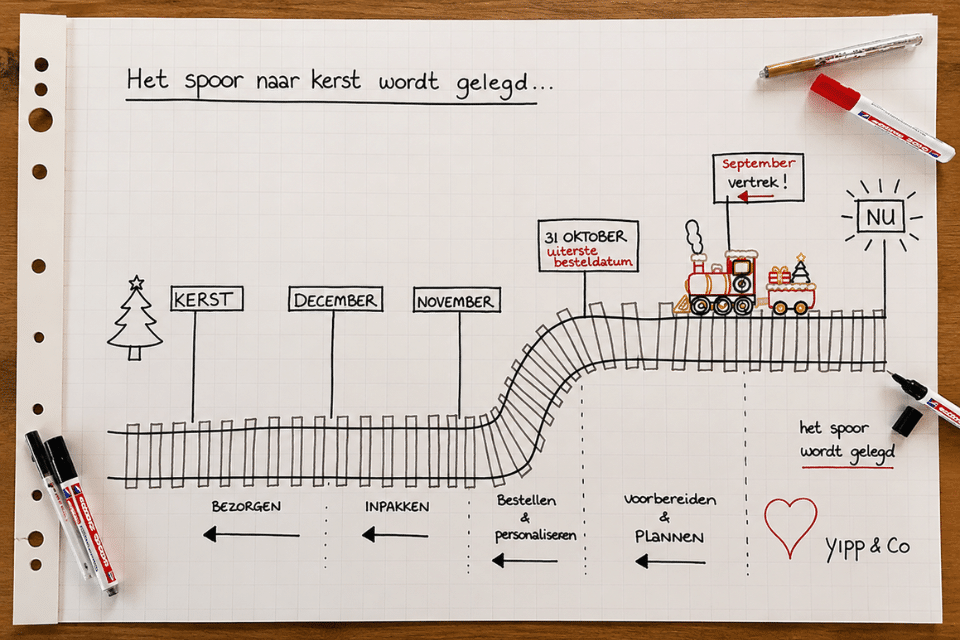 Het spoor naar kerst wordt gelegd...
September
vertrek!
NU
31 OKTOBER
uiterste
besteldatum
KERST
DECEMBER
NOVEMBER
het spoor
wordt gelegd
BEZORGEN
INPAKKEN
Bestellen
&
personaliseren
voorbereiden
&
PLANNEN
Yipp & Co